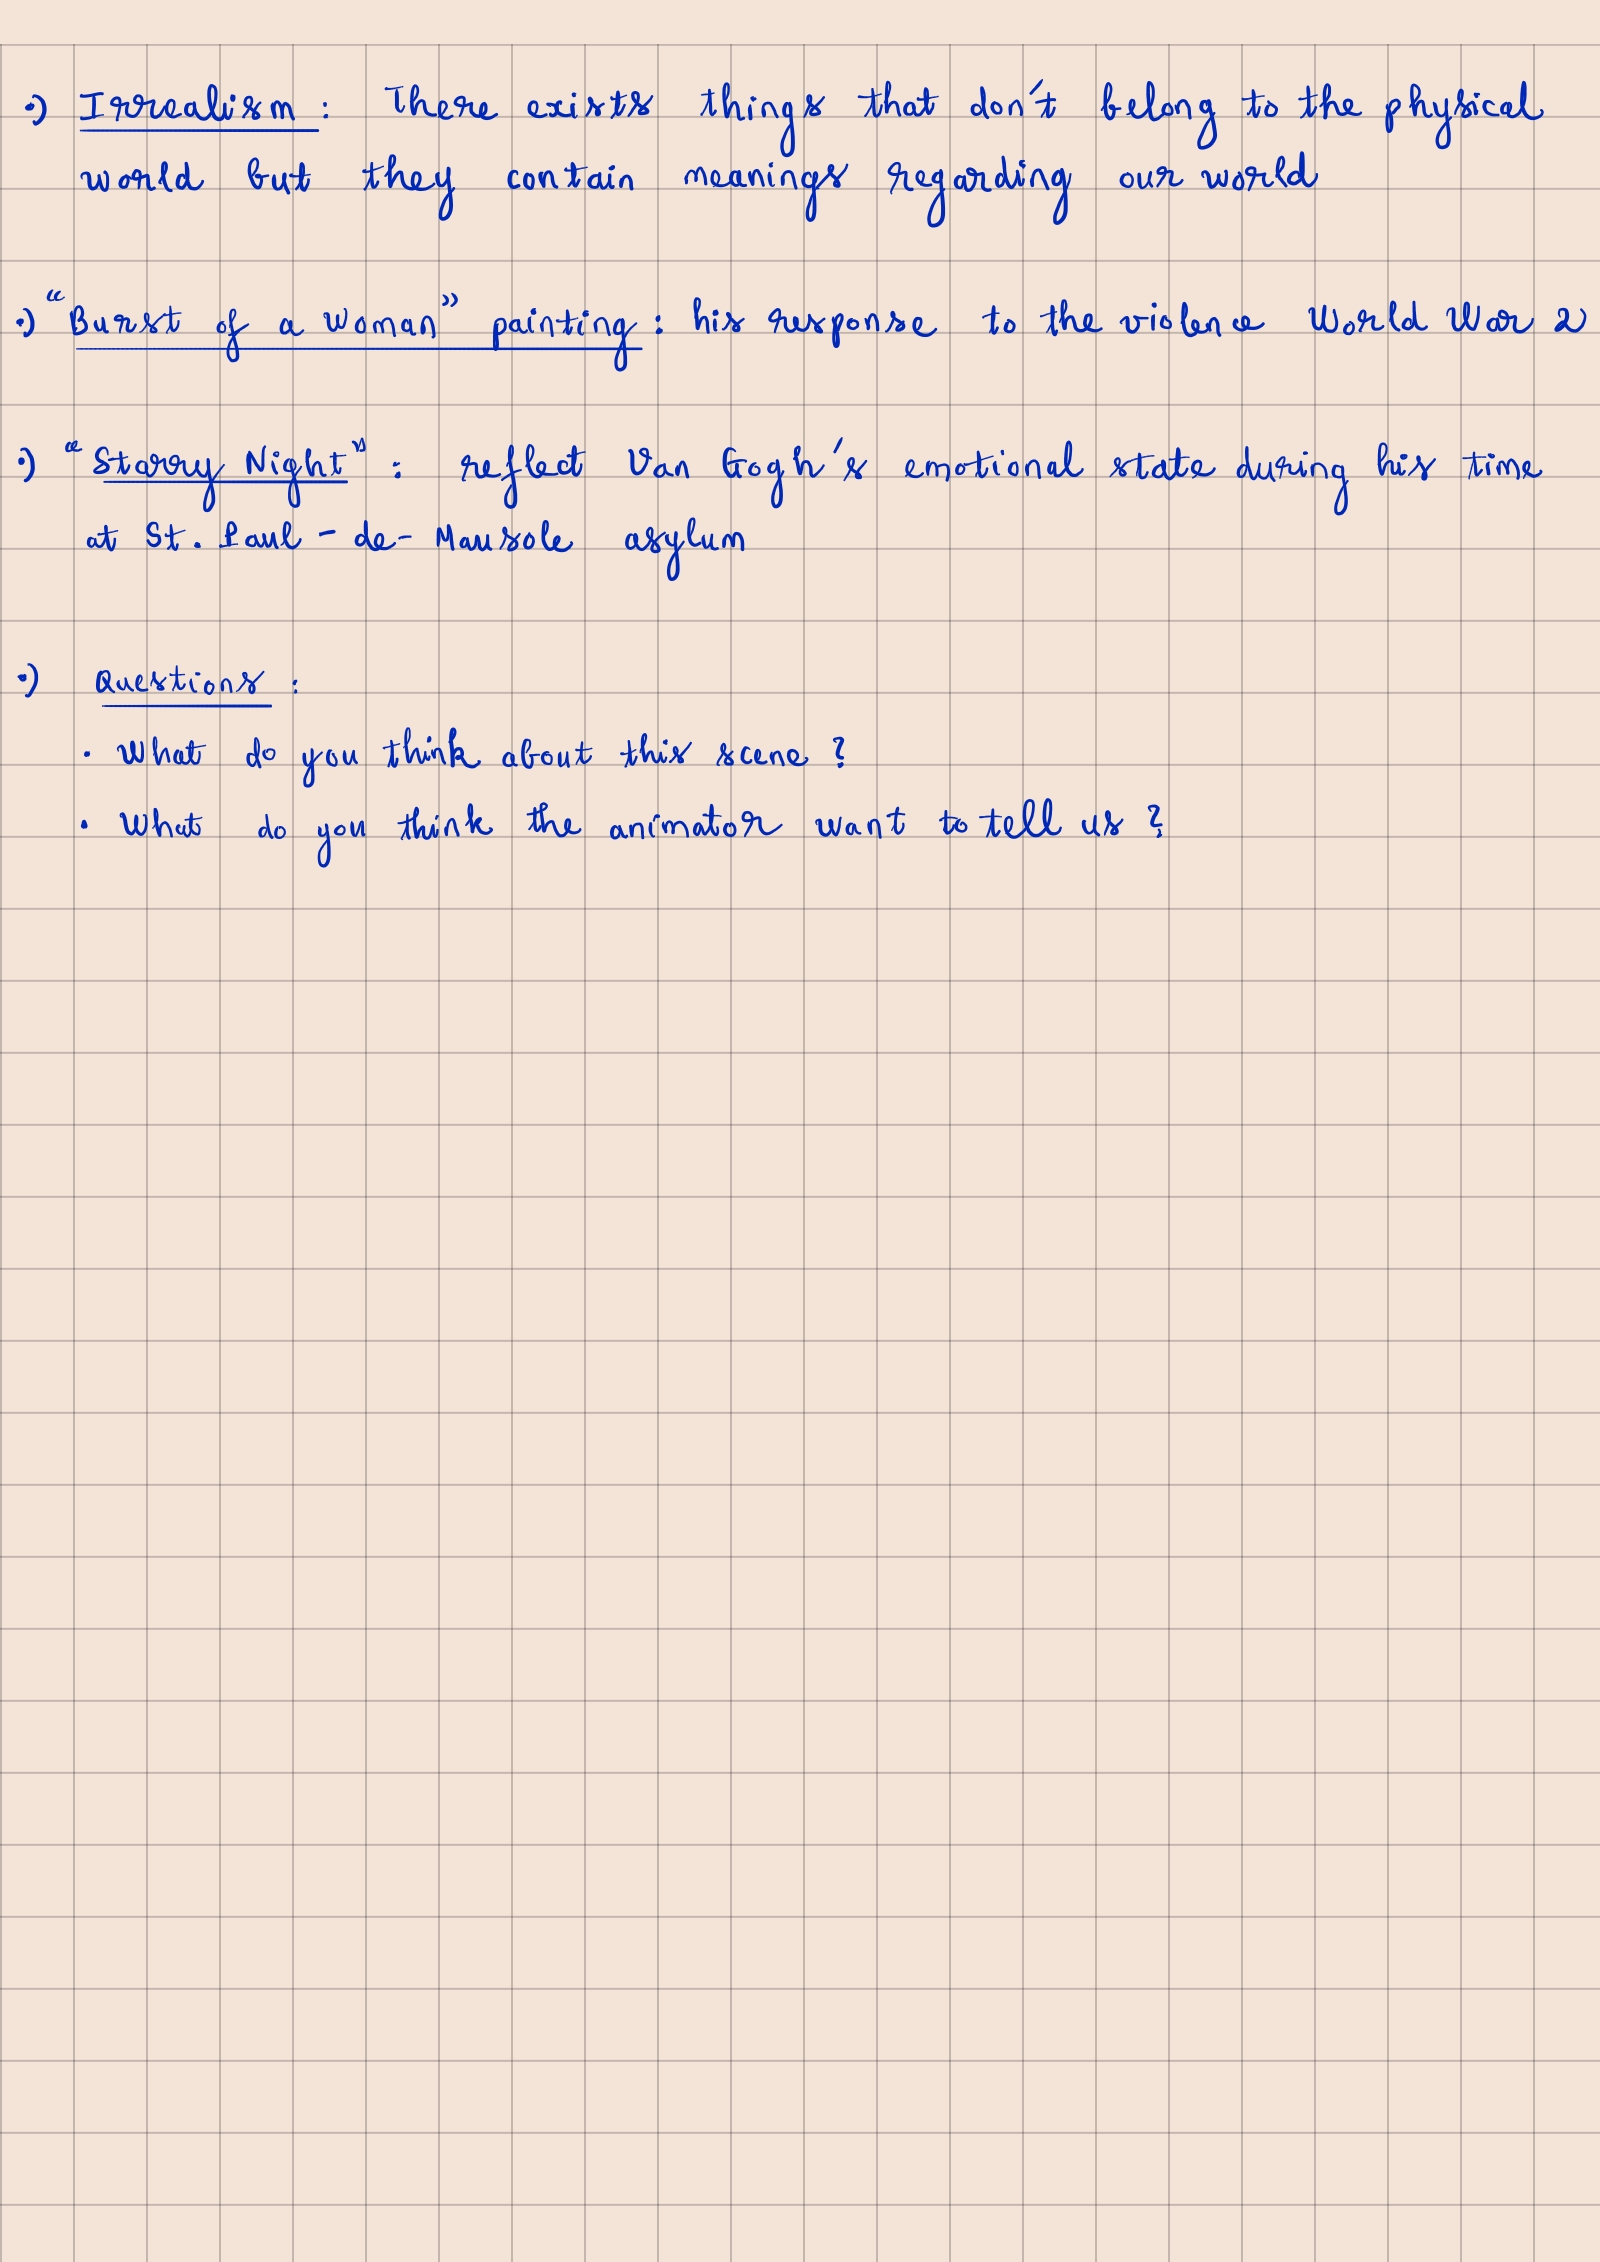 •) Irrealism : There exists things that don't belong to the physical
world but they contain meanings regarding our world
•) "Burst of a Woman" painting : his response to the violence World War 2
•) "Starry Night" : reflect Van Gogh's emotional state during his time
at St. Paul - de - Mausole asylum
•) Questions :
• What do you think about this scene ?
• What do you think the animator want to tell us ?